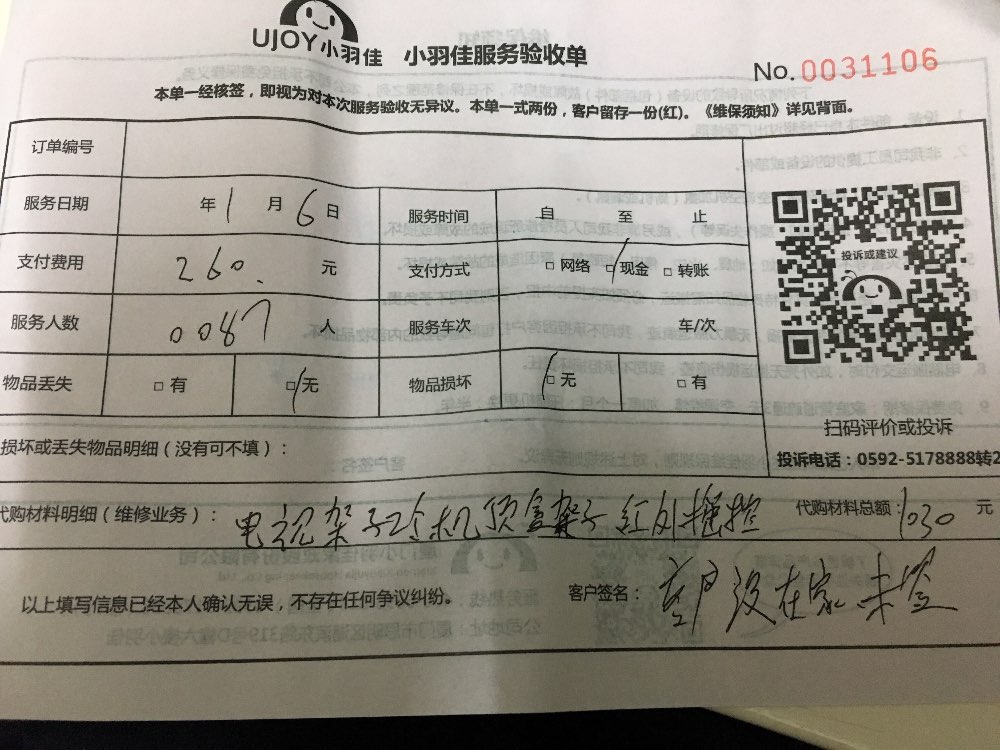 UJOY小羽佳 小羽佳服务验收单
No.0031106
本单一经核签，即视为对本次服务验收无异议。本单一式两份，客户留存一份(红)。《维保须知》详见背面。
订单编号
服务日期 年1月6日 服务时间 自 至 止
支付费用 260. 元 支付方式 □网络 □现金 □转账
投诉或建议
服务人数 0087 人 服务车次 车/次
物品丢失 □有 □无 物品损坏 □无 □有
扫码评价或投诉
损坏或丢失物品明细（没有可不填）：
投诉电话：0592-5178888转2
代购材料明细（维修业务）： 电视架子2个机顶盒架子红外摇控 代购材料总额：1030 元
以上填写信息已经本人确认无误，不存在任何争议纠纷。 客户签名： 客户没在家.未签